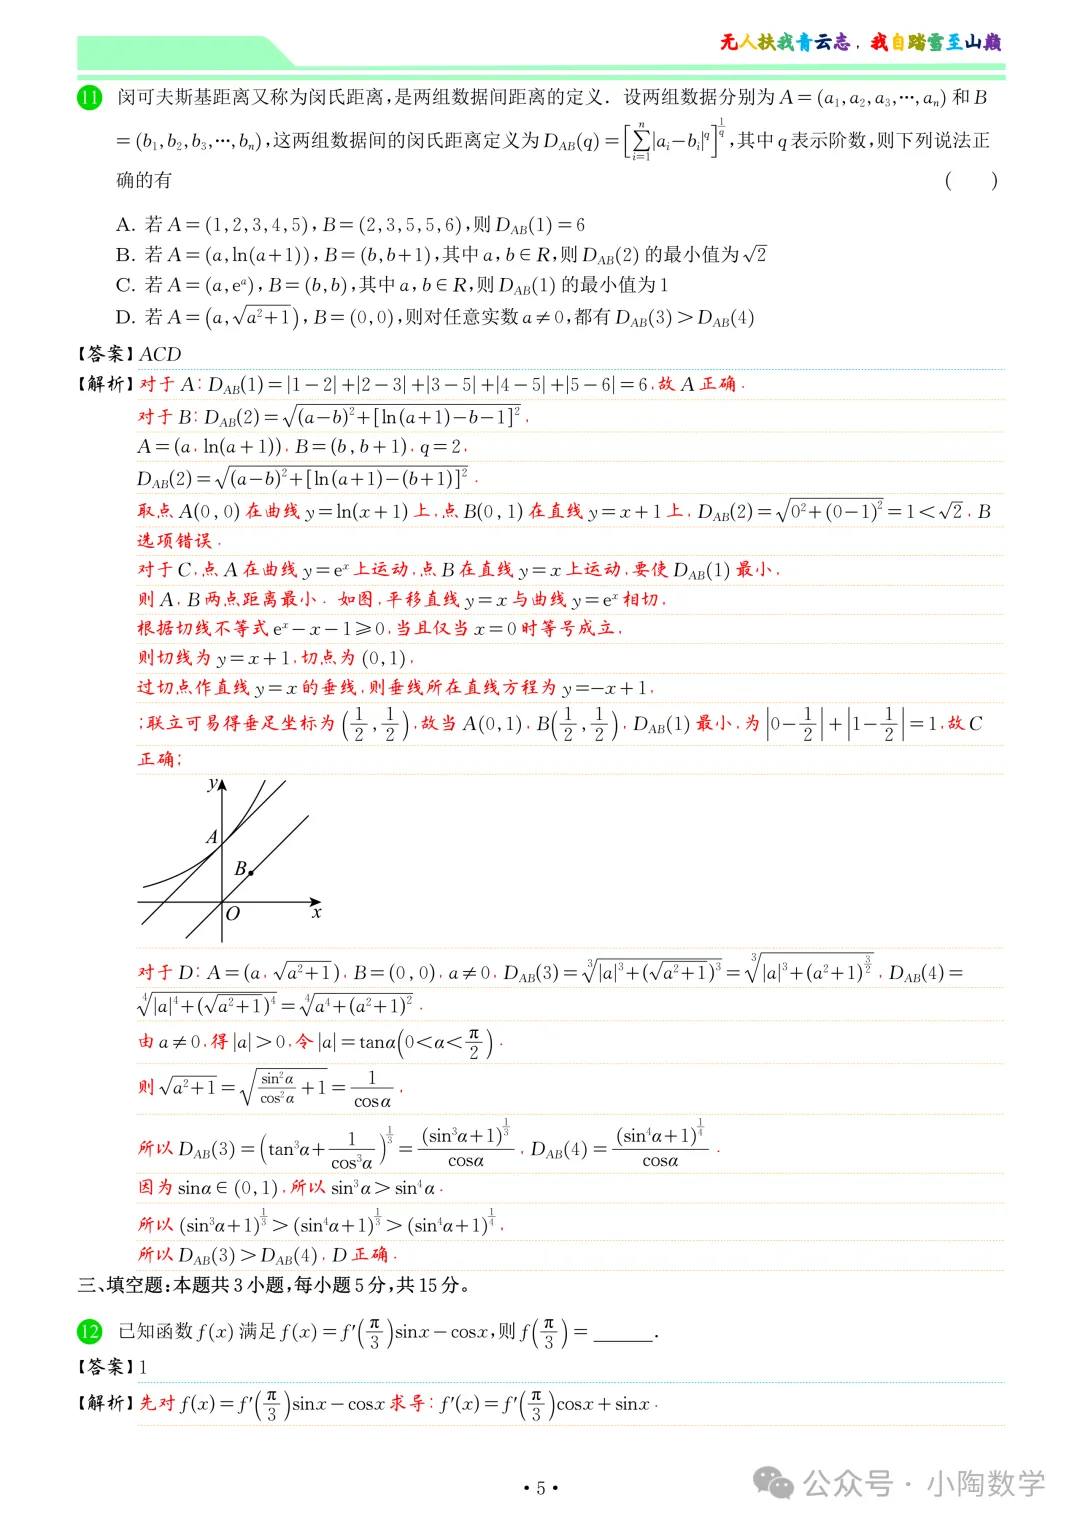 无人扶我青云志，我自踏雪至山巅
11 闵可夫斯基距离又称为闵氏距离,是两组数据间距离的定义．设两组数据分别为 A=(a₁,a₂,a₃,⋯,aₙ) 和 B
=(b₁,b₂,b₃,⋯,bₙ),这两组数据间的闵氏距离定义为 D_AB(q)=[∑_{i=1}^{n}|aᵢ−bᵢ|^q]^{1/q},其中 q 表示阶数,则下列说法正
确的有 （　　）
A. 若 A=(1,2,3,4,5),B=(2,3,5,5,6),则 D_AB(1)=6
B. 若 A=(a,ln(a+1)),B=(b,b+1),其中 a,b∈R,则 D_AB(2) 的最小值为 √2
C. 若 A=(a,eᵃ),B=(b,b),其中 a,b∈R,则 D_AB(1) 的最小值为 1
D. 若 A=(a,√(a²+1)),B=(0,0),则对任意实数 a≠0,都有 D_AB(3)>D_AB(4)
【答案】ACD
【解析】对于 A: D_AB(1)=|1−2|+|2−3|+|3−5|+|4−5|+|5−6|=6,故 A 正确．
对于 B: D_AB(2)=√((a−b)²+[ln(a+1)−b−1]²),
A=(a,ln(a+1)),B=(b,b+1),q=2,
D_AB(2)=√((a−b)²+[ln(a+1)−(b+1)]²)．
取点 A(0,0) 在曲线 y=ln(x+1) 上,点 B(0,1) 在直线 y=x+1 上, D_AB(2)=√(0²+(0−1)²)=1<√2, B
选项错误．
对于 C,点 A 在曲线 y=eˣ 上运动,点 B 在直线 y=x 上运动,要使 D_AB(1) 最小,
则 A, B 两点距离最小．如图,平移直线 y=x 与曲线 y=eˣ 相切,
根据切线不等式 eˣ−x−1⩾0,当且仅当 x=0 时等号成立,
则切线为 y=x+1,切点为 (0,1),
过切点作直线 y=x 的垂线,则垂线所在直线方程为 y=−x+1,
;联立可易得垂足坐标为 (1/2,1/2),故当 A(0,1), B(1/2,1/2), D_AB(1) 最小,为 |0−1/2|+|1−1/2|=1,故 C
正确;
y
A
B
O
x
对于 D: A=(a,√(a²+1)), B=(0,0), a≠0, D_AB(3)=∛(|a|³+(√(a²+1))³)=∛(|a|³+(a²+1)^{3/2}), D_AB(4)=
∜(|a|⁴+(√(a²+1))⁴)=∜(a⁴+(a²+1)²)．
由 a≠0,得 |a|>0,令 |a|=tanα(0<α<π/2)．
则 √(a²+1)=√(sin²α/cos²α+1)=1/cosα,
所以 D_AB(3)=(tan³α+1/cos³α)^{1/3}=(sin³α+1)^{1/3}/cosα, D_AB(4)=(sin⁴α+1)^{1/4}/cosα．
因为 sinα∈(0,1),所以 sin³α>sin⁴α．
所以 (sin³α+1)^{1/3}>(sin⁴α+1)^{1/3}>(sin⁴α+1)^{1/4},
所以 D_AB(3)>D_AB(4), D 正确．
三、填空题:本题共 3 小题,每小题 5 分,共 15 分。
12 已知函数 f(x) 满足 f(x)=f′(π/3)sinx−cosx,则 f(π/3)=______．
【答案】1
【解析】先对 f(x)=f′(π/3)sinx−cosx 求导: f′(x)=f′(π/3)cosx+sinx．
·5·
公众号·小陶数学